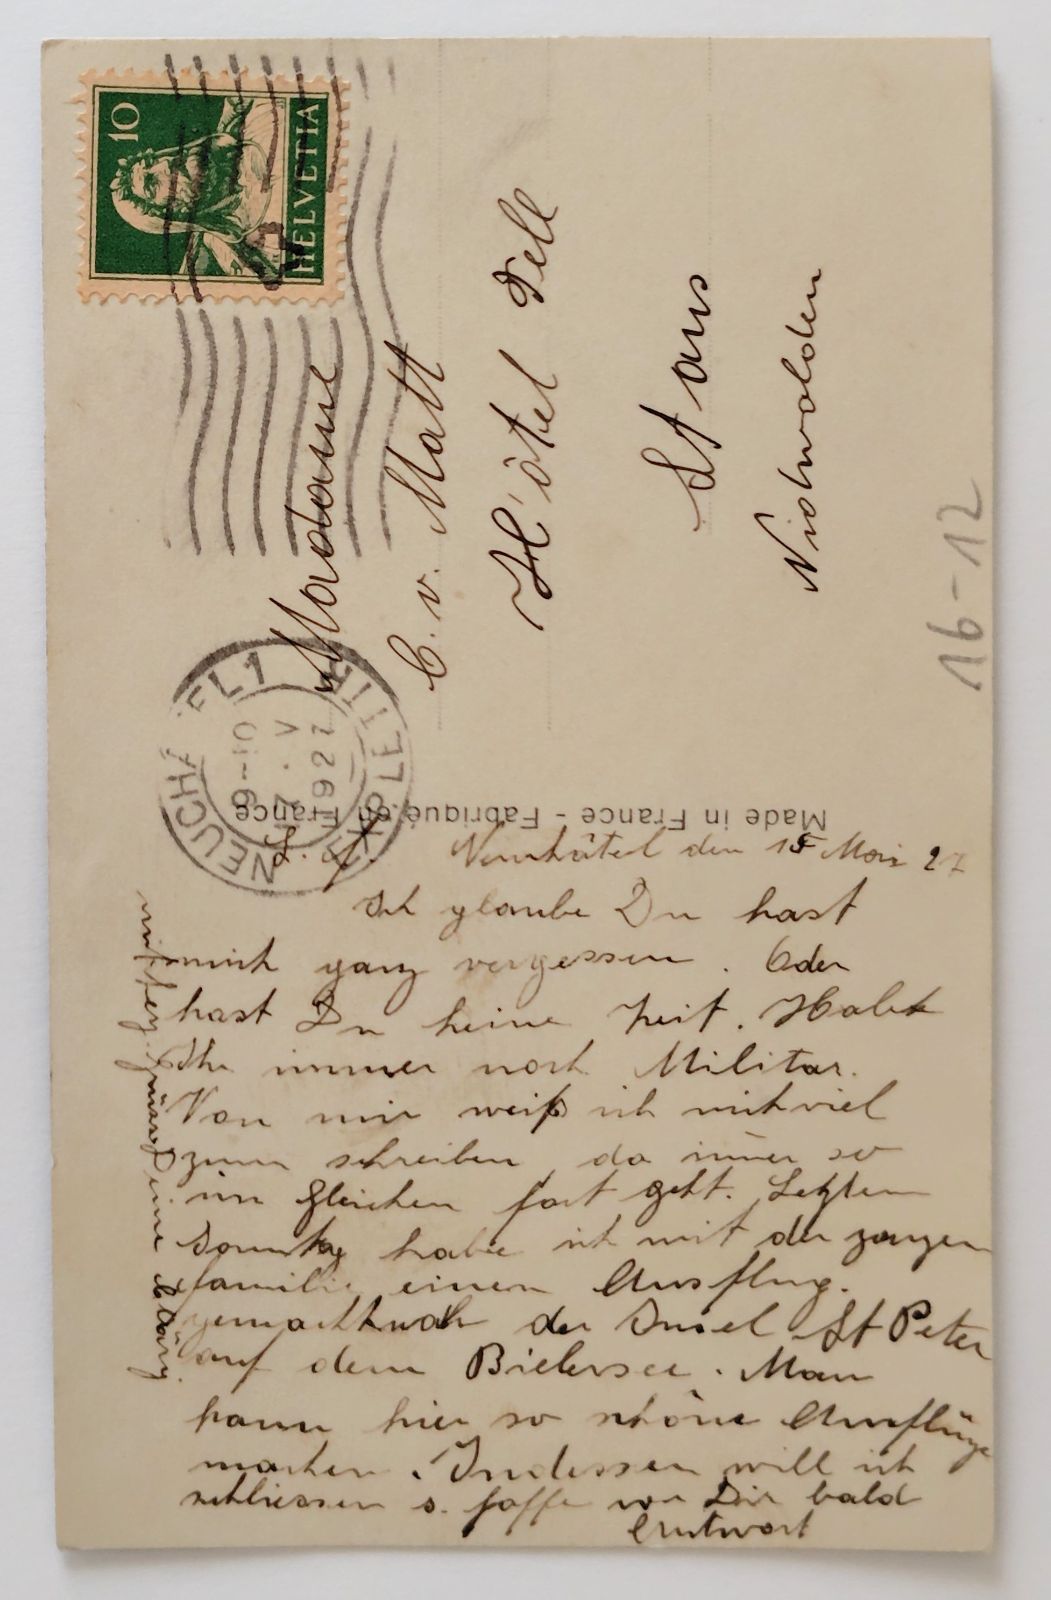 HELVETIA
10
NEUCHATEL 1
EXPED. LETT.
9-10
17. V
1927
Madame
C. v. Matt
Hôtel Tell
Stans
Nidwalden
16-12
Made in France - Fabriqué en France
Neuchâtel den 15 Mai 27
L.
Ich glaube Du hast
mich ganz vergessen. Oder
hast Du keine Zeit. Habt
Ihr immer noch Militar.
Von mir weiß ich nicht viel
zum schreiben da imer so
im gleichen fort geht. Letzten
Sonntag habe ich mit der ganzen
familie einen Ausflug.
gemacht nach der Insel St Peter
auf dem Bielersee. Man
kann hier so schöne Ausflüge
machen. Indessen will ich
schliessen u. hoffe von Dir bald
Antwort
mit herz. Grüss Deine